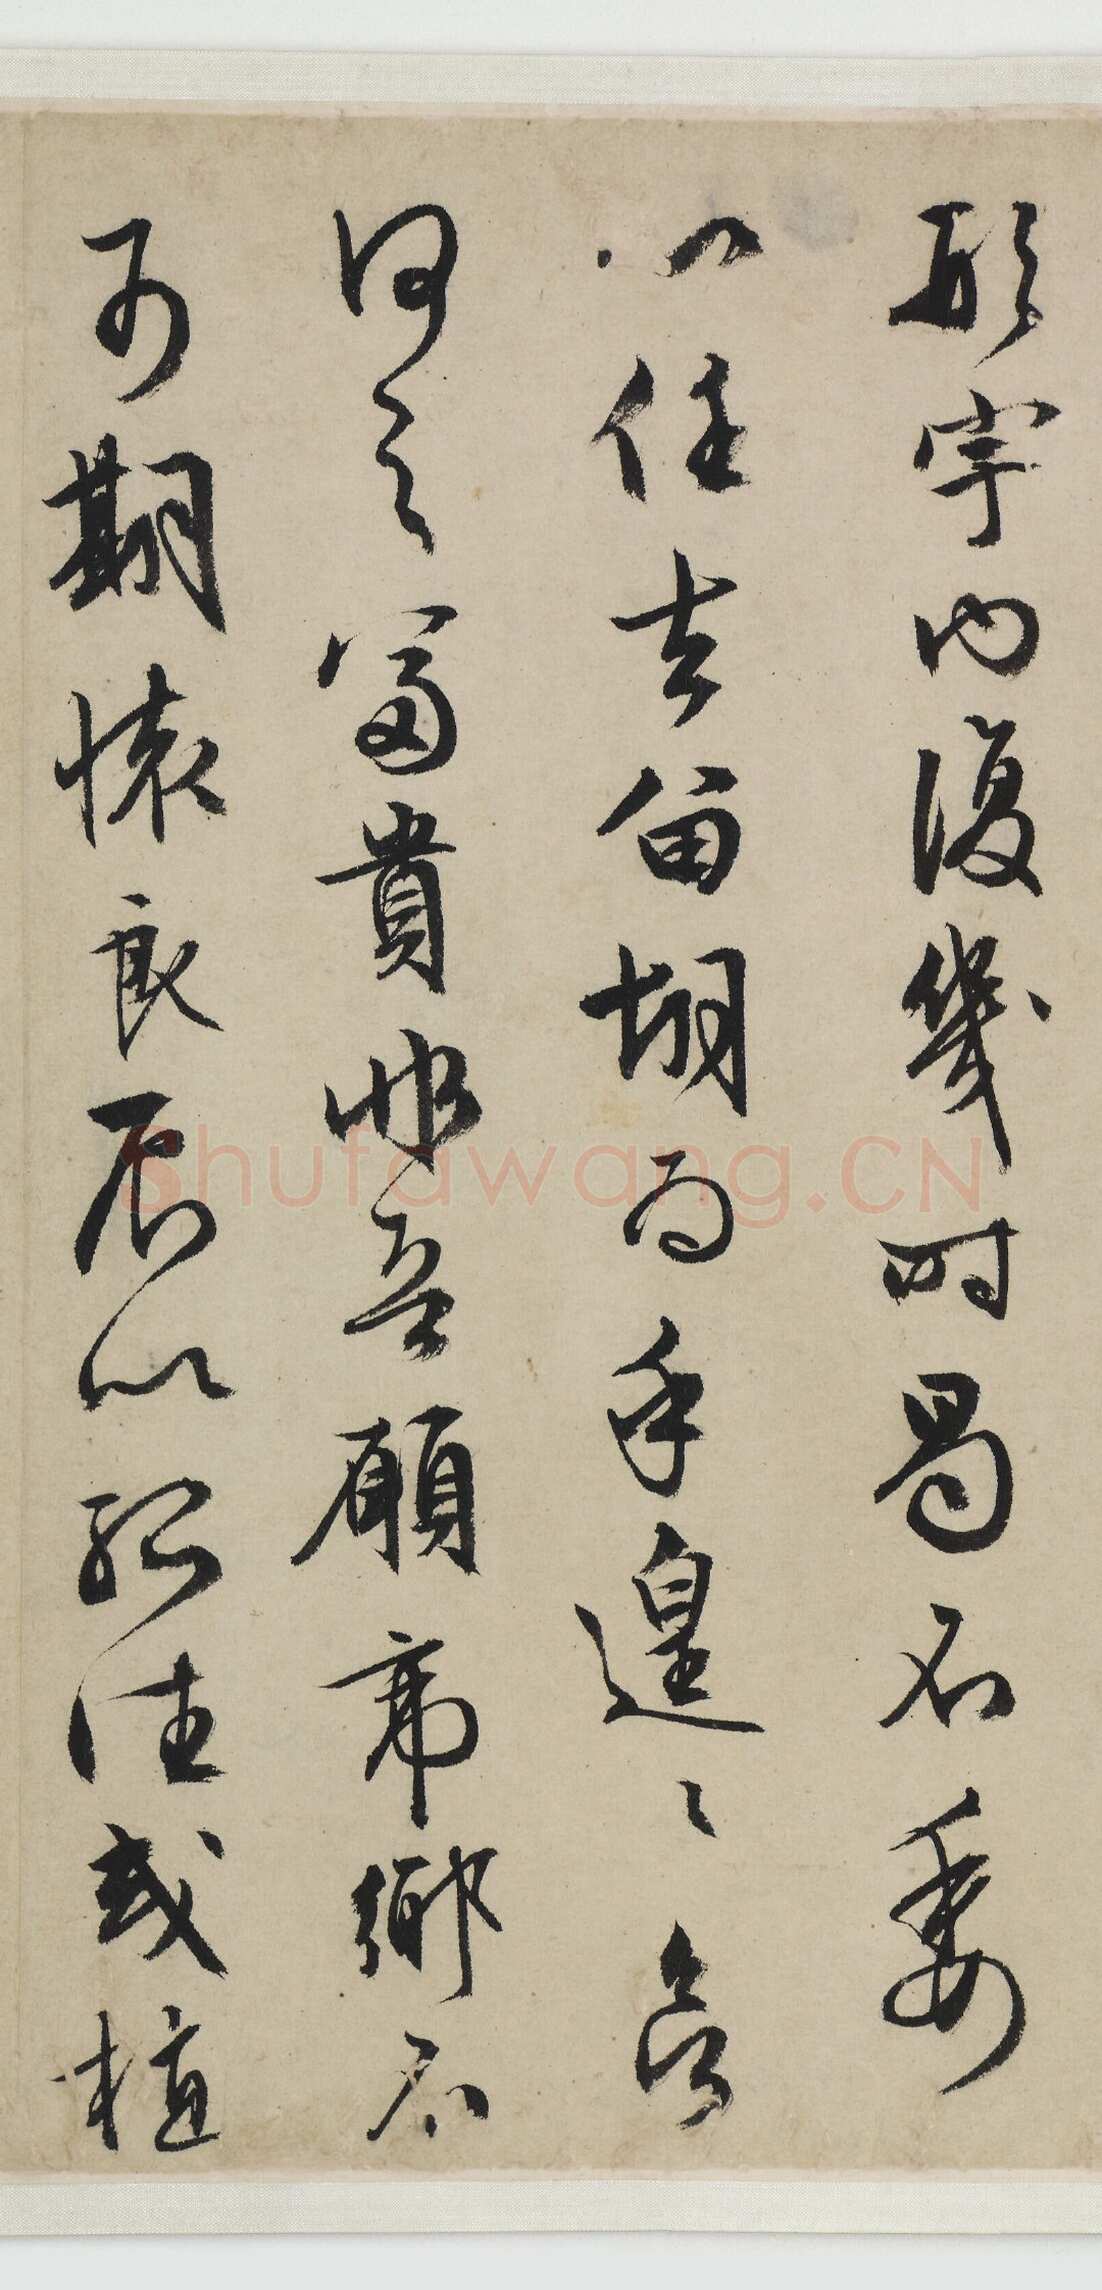 形宇内復幾時曷不委
心任去留胡為乎遑〻欲
何之富貴非吾願帝鄉不
可期懷良辰以孤往或植
Shufawang.CN